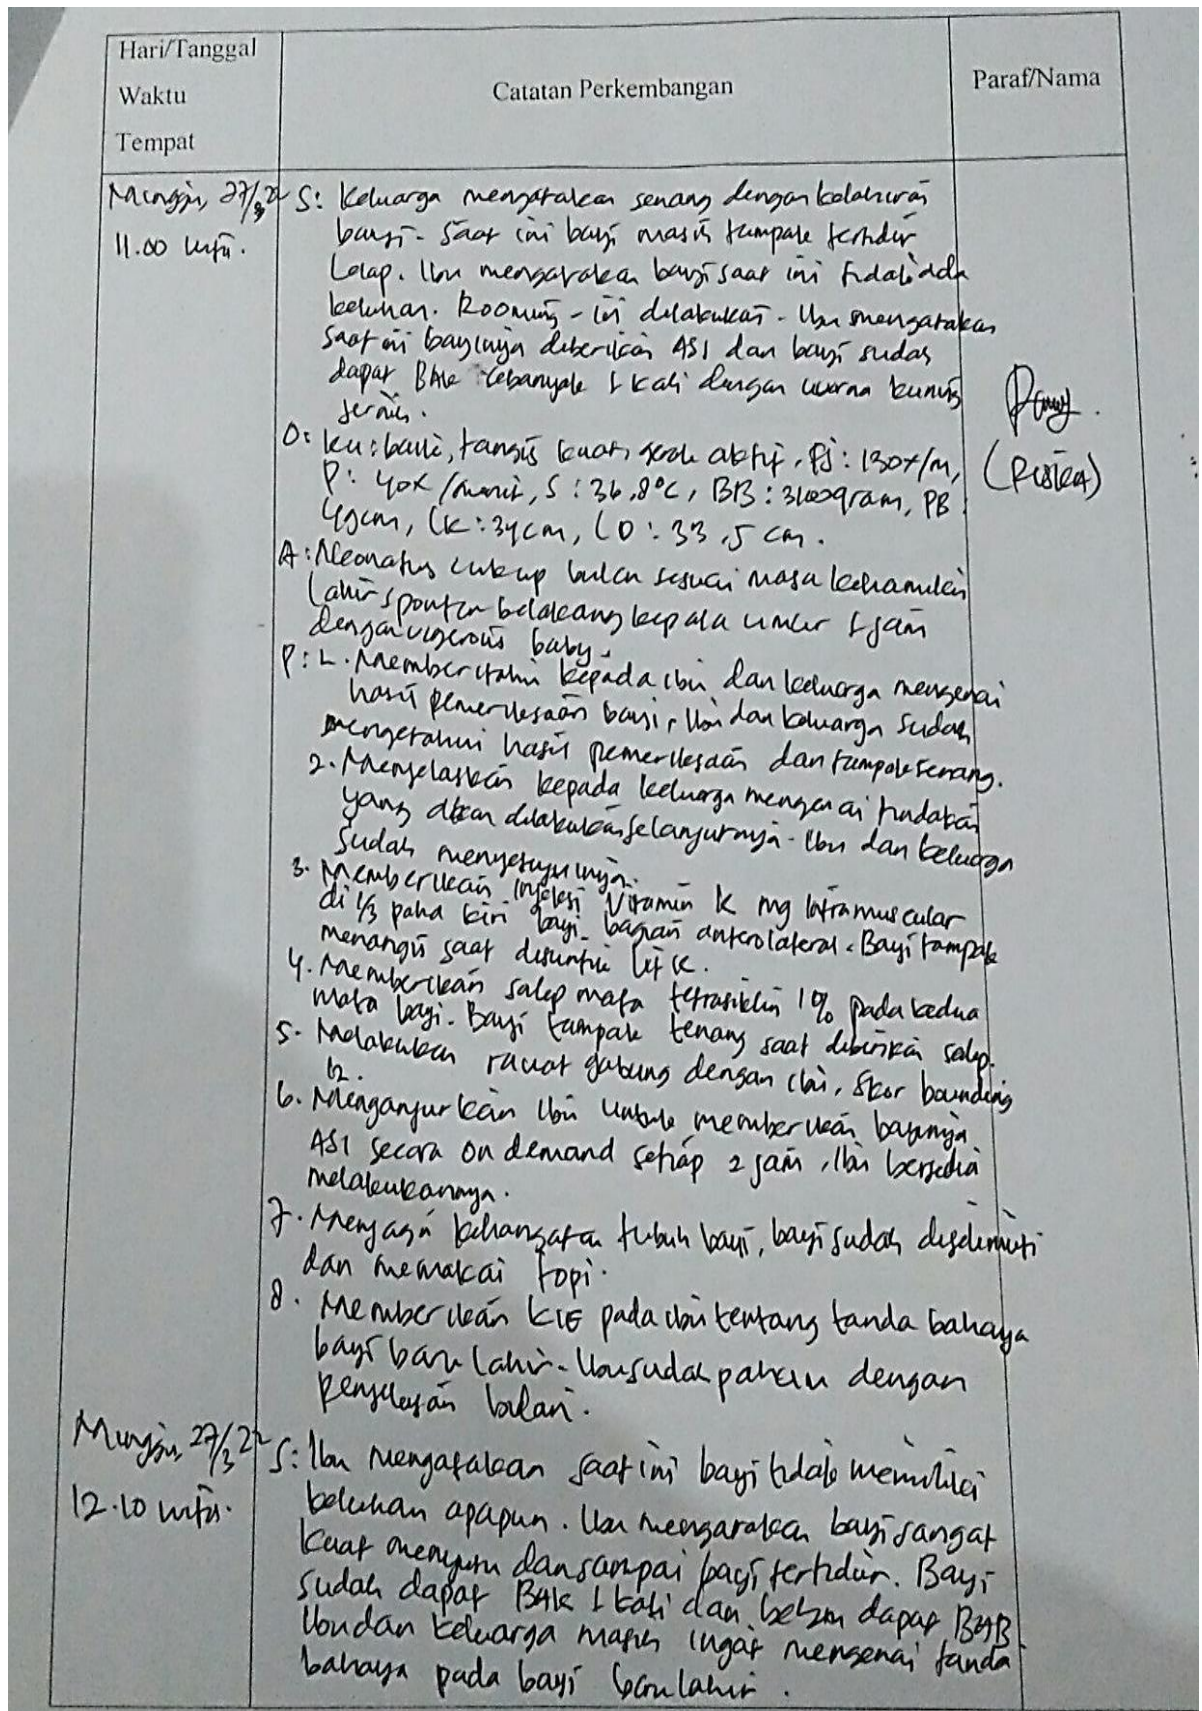 Hari/Tanggal
Waktu
Tempat
Catatan Perkembangan
Paraf/Nama
Minggu, 27/3 22
11.00 wita.
S: Keluarga mengatakan senang dengan kelahiran
bayi. Saat ini bayi masih tampak tertidur
Lelap. Ibu mengatakan bayi saat ini tidak ada
keluhan. Rooming-in dilakukan. Ibu mengatakan
saat ini bayinya diberikan ASI dan bayi sudah
dapat BAK sebanyak 1 kali dengan warna kuning
jernih.
O: ku: baik, tangis kuat, gerak aktif, FJ: 130x/m,
P: 40x/menit, S: 36,8°C, BB: gram, PB
49cm, LK: 34cm, LD: 33,5 cm.
(Riska)
A: Neonatus cukup bulan sesuai masa kehamilan
Lahir spontan belakang kepala umur 1 jam
dengan vigerous baby.
P: 1. Memberitahu kepada ibu dan keluarga mengenai
hasil pemeriksaan bayi, Ibu dan keluarga sudah
mengetahui hasil pemeriksaan dan tampak senang.
2. Menjelaskan kepada keluarga mengenai tindakan
yang akan dilakukan selanjutnya. Ibu dan keluarga
sudah menyetujuinya.
3. Memberikan injeksi Vitamin K mg Intramuscular
di 1/3 paha kiri bayi bagian anterolateral. Bayi tampak
menangis saat disuntik vit K.
4. Memberikan salep mata tetrasiklin 1% pada kedua
mata bayi. Bayi tampak tenang saat diberikan salep.
5. Melakukan rawat gabung dengan ibu, Skor bounding
12.
6. Menganjurkan Ibu untuk memberikan bayinya
ASI secara on demand setiap 2 jam, Ibu bersedia
melakukannya.
7. Menjaga kehangatan tubuh bayi, bayi sudah diselimuti
dan memakai topi.
8. Memberikan KIE pada ibu tentang tanda bahaya
bayi baru lahir. Ibu sudah paham dengan
penjelasan bidan.
Minggu, 27/3 22
12.10 wita.
S: Ibu mengatakan saat ini bayi tidak memiliki
keluhan apapun. Ibu mengatakan bayi sangat
kuat menyusu dan sampai bayi tertidur. Bayi
sudah dapat BAK 1 kali dan belum dapat BAB
Ibu dan keluarga masih ingat mengenai tanda
bahaya pada bayi baru lahir.